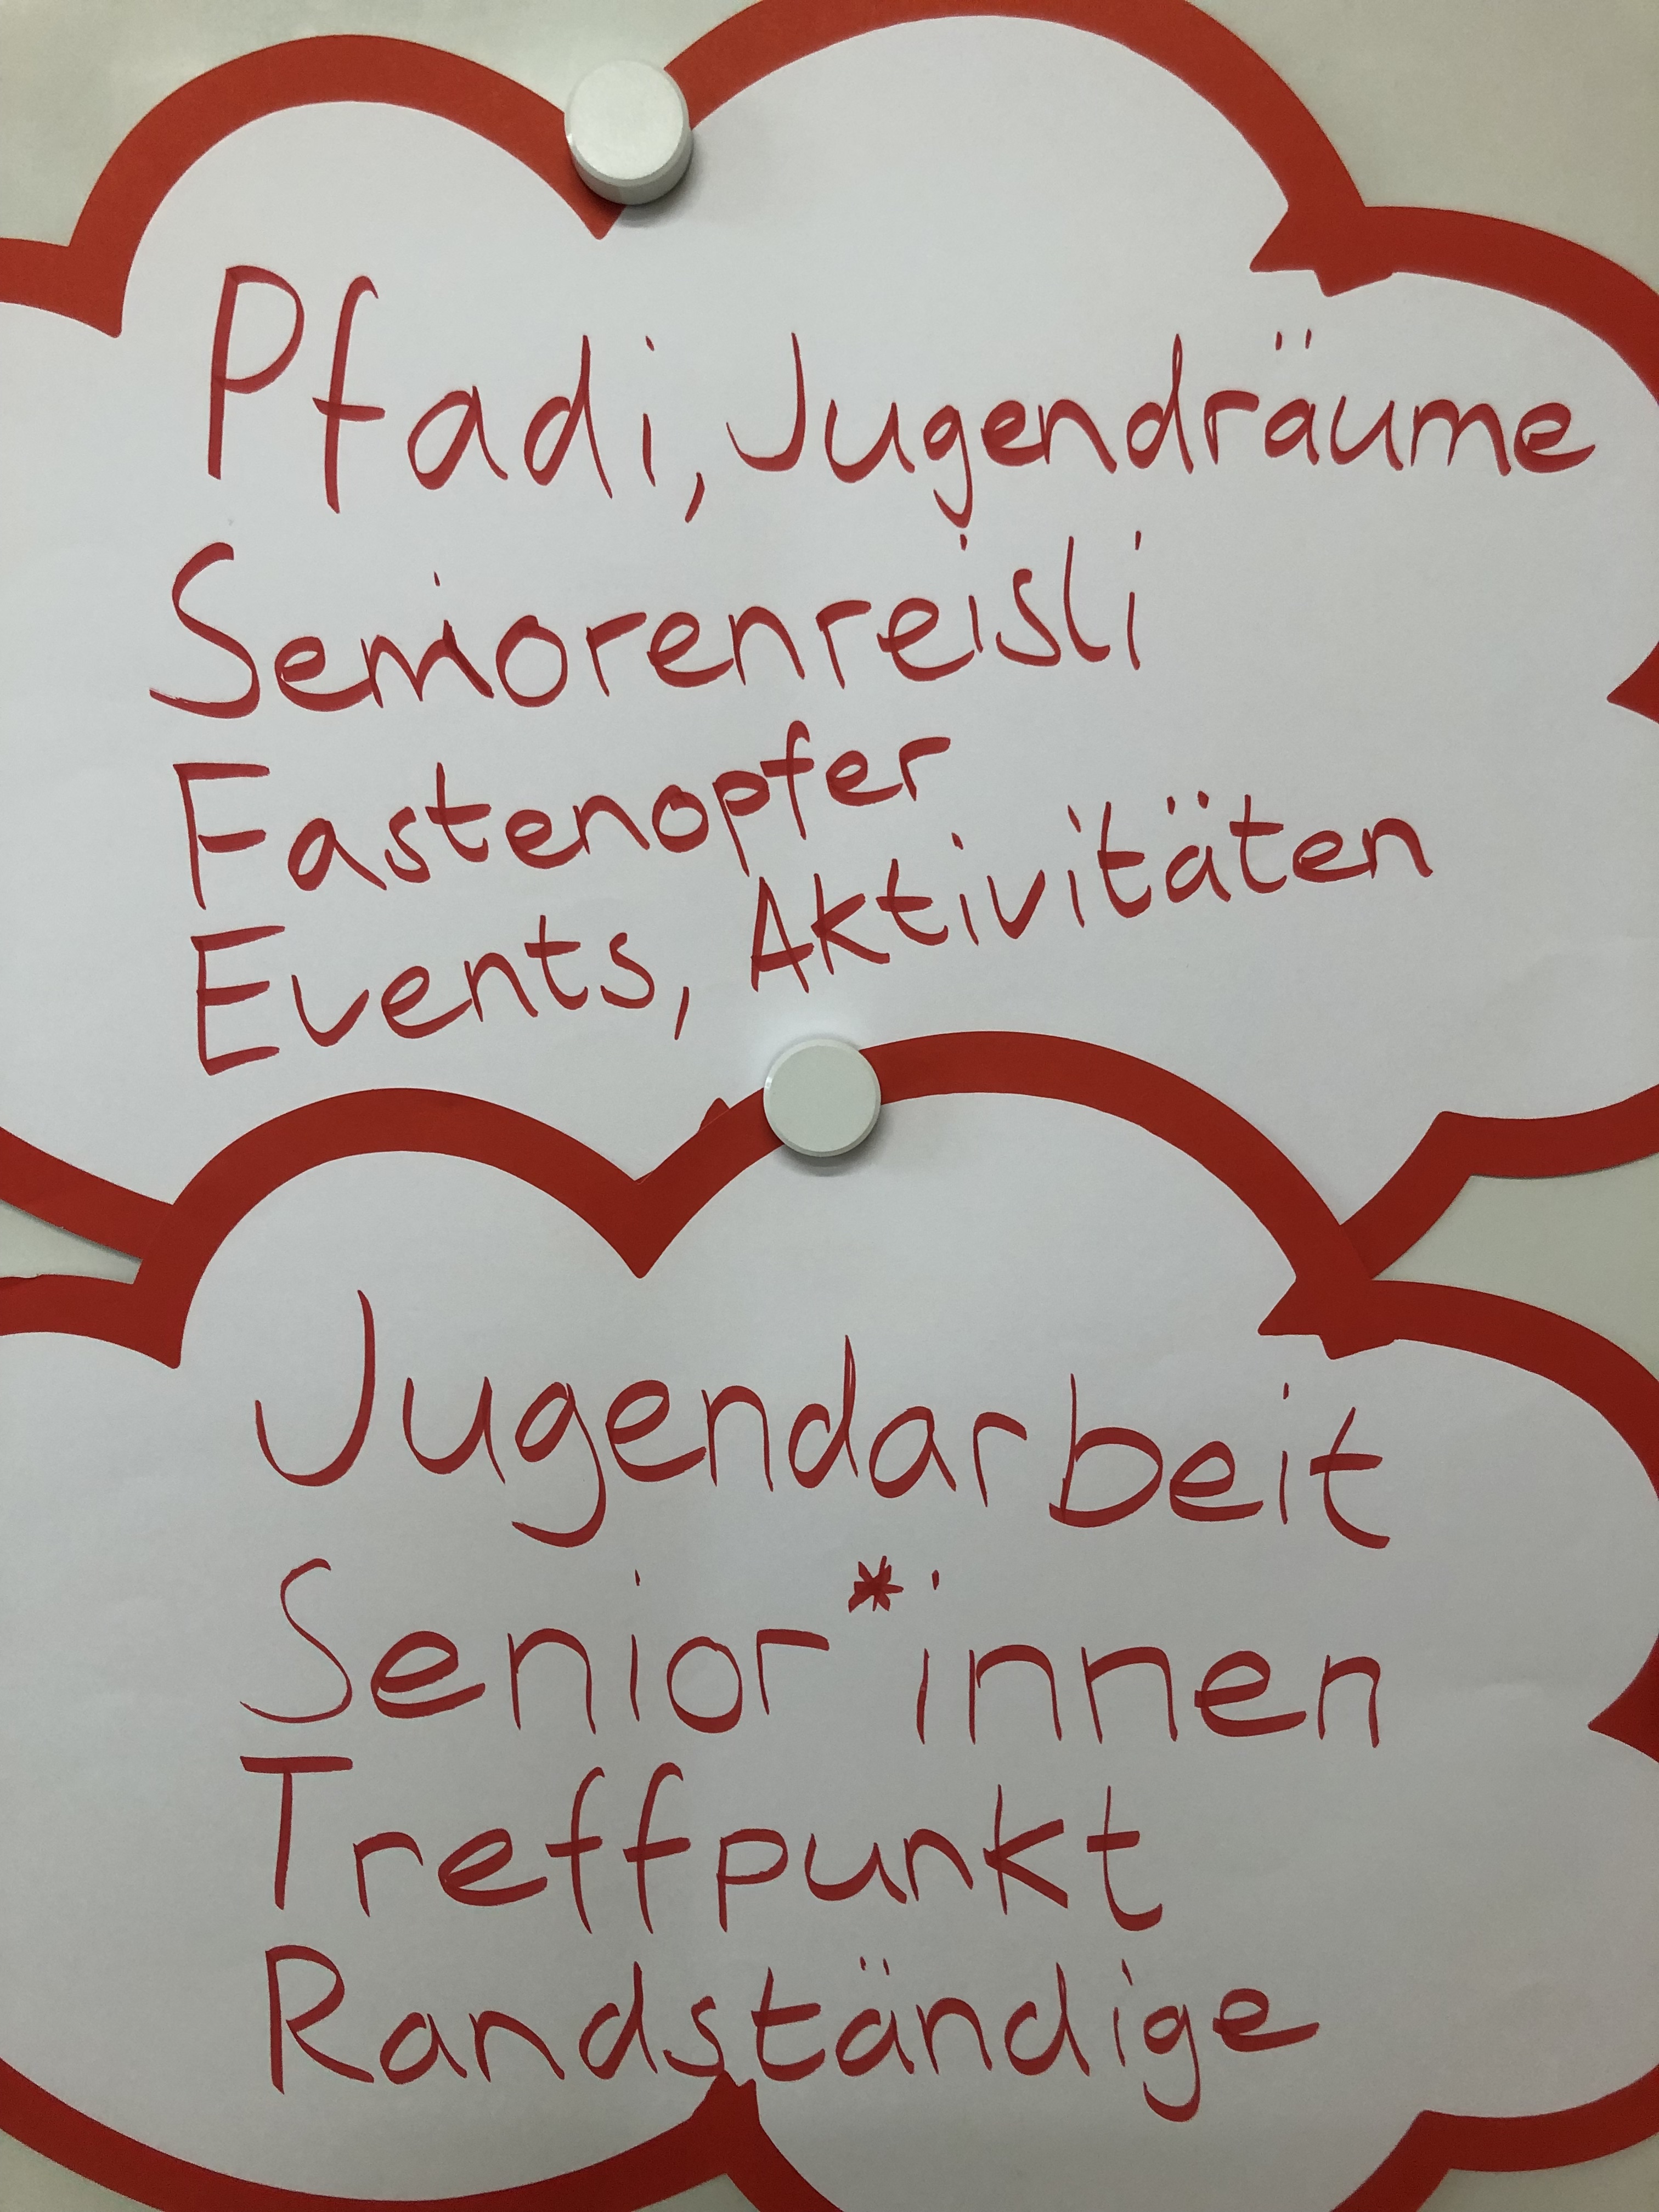 Pfadi, Jugendräume
Seniorenreisli
Fastenopfer
Events, Aktivitäten
Jugendarbeit
Senior*innen
Treffpunkt
Randständige